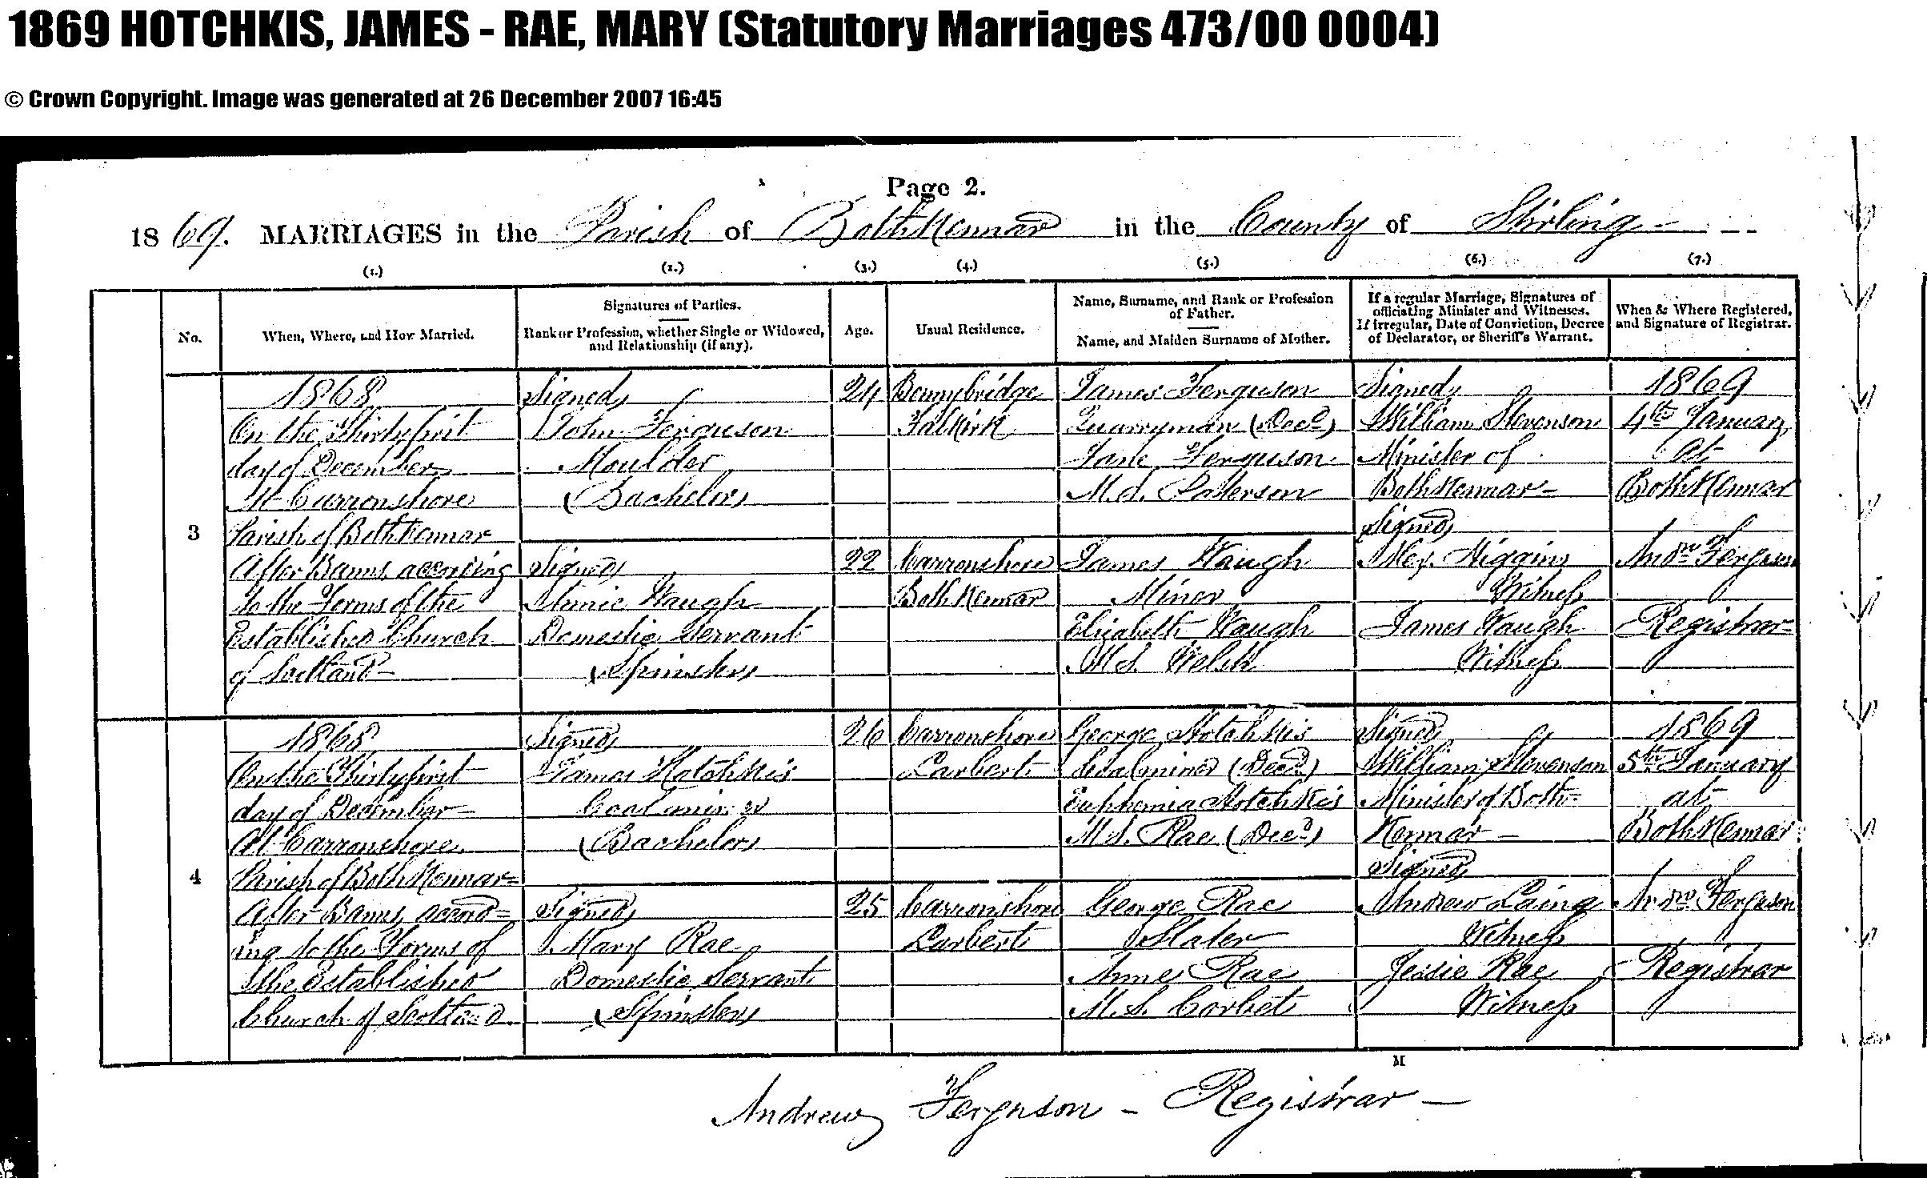 1869 HOTCHKIS, JAMES - RAE, MARY (Statutory Marriages 473/00 0004)
© Crown Copyright. Image was generated at 26 December 2007 16:45
Page 2.
1869. MARRIAGES in the Parish of Bothkennar in the County of Stirling
(1.) (2.) (3.) (4.) (5.) (6.) (7.)
No.
When, Where, and How Married.
Signatures of Parties.
Rank or Profession, whether Single or Widowed,
and Relationship (if any).
Age.
Usual Residence.
Name, Surname, and Rank or Profession
of Father.
Name, and Maiden Surname of Mother.
If a regular Marriage, Signatures of
officiating Minister and Witnesses.
If irregular, Date of Conviction, Decree
of Declarator, or Sheriff's Warrant.
When & Where Registered,
and Signature of Registrar.
3
1868
On the Thirty first
day of December
At Carronshore
Parish of Bothkennar
After Banns according
to the Forms of the
Established Church
of Scotland
Signed
John Ferguson
Moulder
(Bachelor)
Signed
Waugh
Domestic Servant
(Spinster)
24
22
Bonnybridge
Falkirk
Carronshore
Bothkennar
James Ferguson
Quarryman (Decd)
Jane Ferguson
M.S. Paterson
James Waugh
Miner
Elizabeth Waugh
M.S. Welsh
Signed
William Stevenson
Minister of
Bothkennar
Signed
Alex. Higgins
Witness
James Waugh
Witness
1869
4th January
At
Bothkennar
Andw Ferguson
Registrar
4
1868
On the Thirty first
day of December
At Carronshore
Parish of Bothkennar
After Banns accord=
ing to the Forms of
the Established
Church of Scotland
Signed
James Hotchkis
Coal miner
(Bachelor)
Signed
Mary Rae
Domestic Servant
(Spinster)
26
25
Carronshore
Larbert
Carronshore
Larbert
George Hotchkis
Coalminer (Decd)
Euphemia Hotchkis
M.S. Rae (Decd)
George Rae
Slater
Agnes Rae
M.S. Corbet
Signed
William Stevenson
Minister of Both-
Kennar
Signed
Andrew Laing
Witness
Jessie Rae
Witness
1869
5th January
at
Bothkennar
Andw Ferguson
Registrar
M
Andrew Ferguson - Registrar